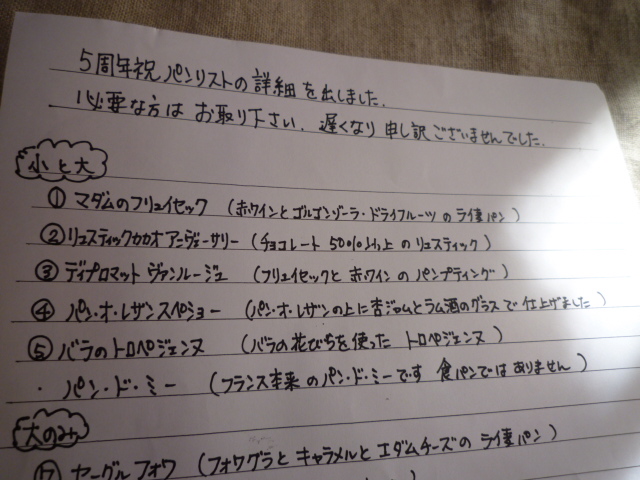 5周年祝パンリストの詳細を出しました.
必要な方は お取り下さい. 遅くなり 申し訳ございませんでした.
小と大
① マダムのフリュイセック (赤ワインとゴルゴンゾーラ・ドライフルーツの ライ麦パン)
② リュスティックカカオアニヴェーサリー (チョコレート 50%以上の リュスティック)
③ ディプロマット ヴァンルージュ (フリュイセックと 赤ワイン の パンプディング)
④ パン・オ・レザンスペショー (パン・オ・レザンの上に杏ジャムとラム酒のグラス で 仕上げました)
⑤ バラのトロペジェンヌ (バラの花びらを使った トロペジェンヌ)
・ パン・ド・ミー (フランス本来 の パン・ド・ミーです 食パンでは ありません)
大のみ
セーグル フォワ (フォワグラと キャラメルと エダムチーズの ライ麦パン)